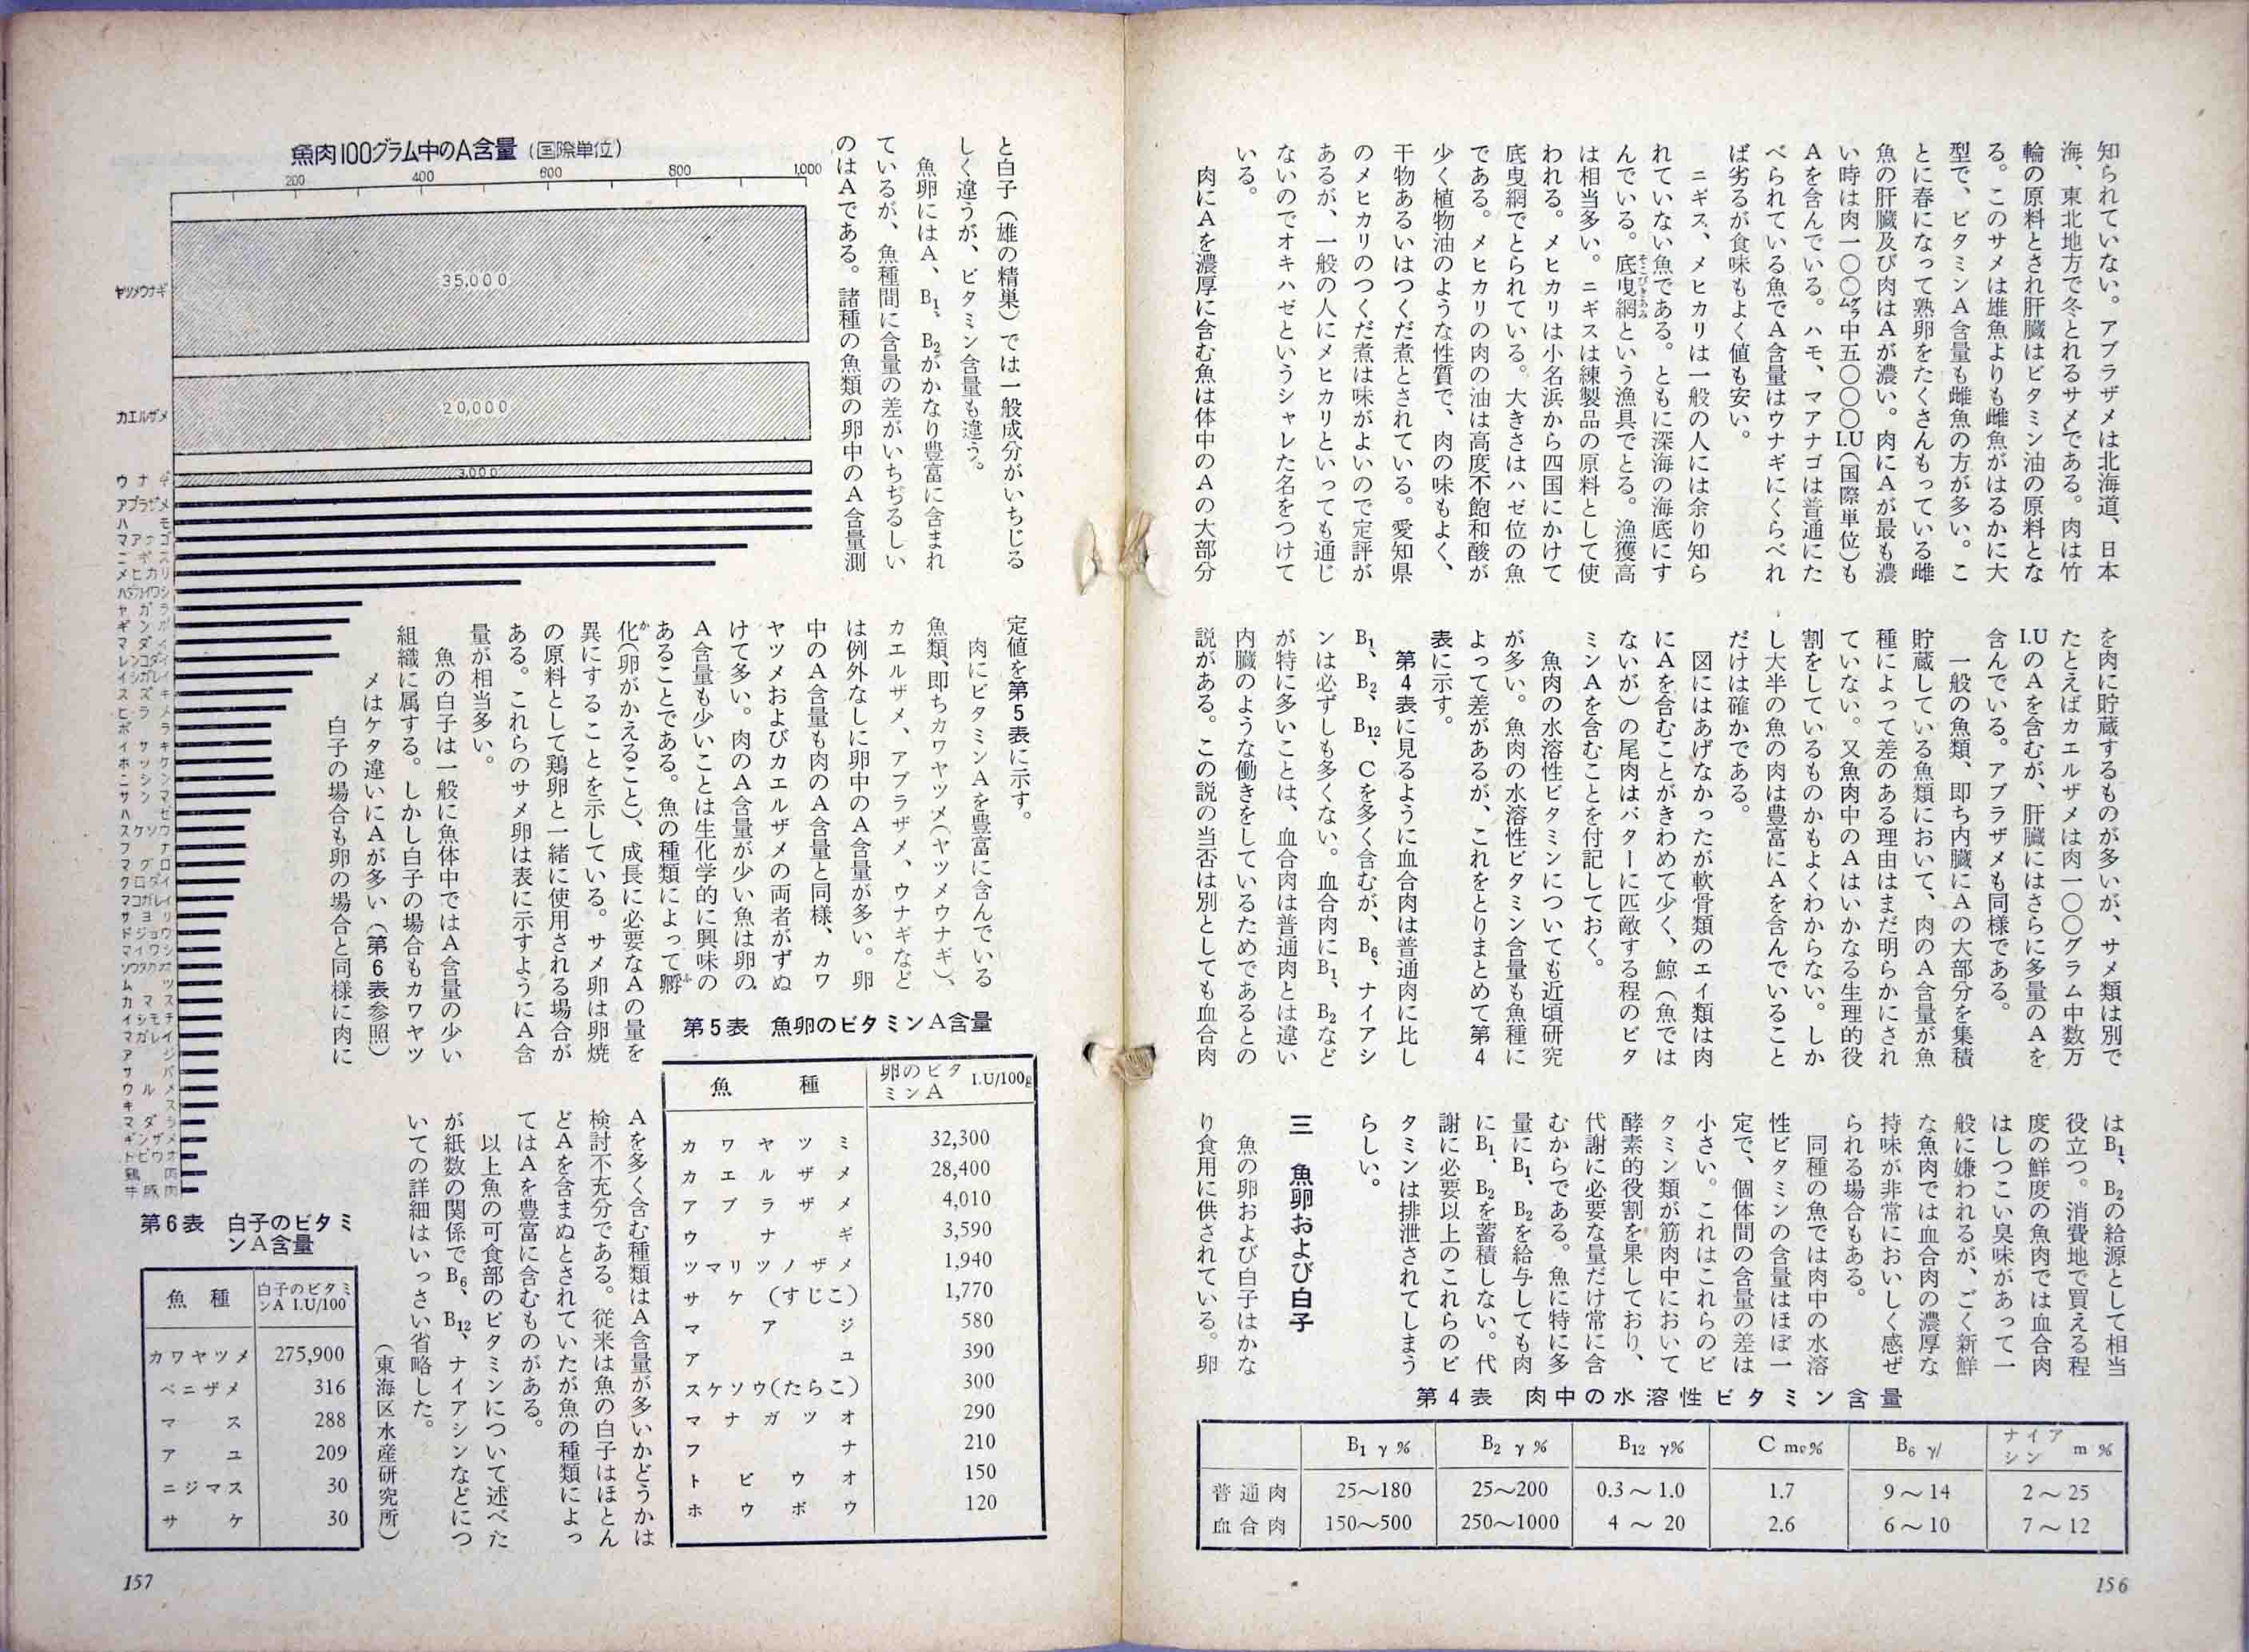 知られていない。アブラザメは北海道、日本
海、東北地方で冬とれるサメである。肉は竹
輪の原料とされ肝臓はビタミン油の原料とな
る。このサメは雄魚よりも雌魚がはるかに大
型で、ビタミンA含量も雌魚の方が多い。こ
とに春になって熟卵をたくさんもっている雌
魚の肝臓及び肉はAが濃い。肉にAが最も濃
い時は肉一〇〇グラム中五〇〇〇I.U(国際単位)も
Aを含んでいる。ハモ、マアナゴは普通にた
べられている魚でA含量はウナギにくらべれ
ば劣るが食味もよく値も安い。
ニギス、メヒカリは一般の人には余り知ら
れていない魚である。ともに深海の海底にす
んでいる。底曳網そこびきあみという漁具でとる。漁獲高
は相当多い。ニギスは練製品の原料として使
われる。メヒカリは小名浜から四国にかけて
底曳網でとられている。大きさはハゼ位の魚
である。メヒカリの肉の油は高度不飽和酸が
少く植物油のような性質で、肉の味もよく、
干物あるいはつくだ煮とされている。愛知県
のメヒカリのつくだ煮は味がよいので定評が
あるが、一般の人にメヒカリといっても通じ
ないのでオキハゼというシャレた名をつけて
いる。
肉にAを濃厚に含む魚は体中のAの大部分
を肉に貯蔵するものが多いが、サメ類は別で
たとえばカエルザメは肉一〇〇グラム中数万
I.UのAを含むが、肝臓にはさらに多量のAを
含んでいる。アブラザメも同様である。
一般の魚類、即ち内臓にAの大部分を集積
貯蔵している魚類において、肉のA含量が魚
種によって差のある理由はまだ明らかにされ
ていない。又魚肉中のAはいかなる生理的役
割をしているものかもよくわからない。しか
し大半の魚の肉は豊富にAを含んでいること
だけは確かである。
図にはあげなかったが軟骨類のエイ類は肉
にAを含むことがきわめて少く、鯨(魚では
ないが)の尾肉はバターに匹敵する程のビタ
ミンAを含むことを付記しておく。
魚肉の水溶性ビタミンについても近頃研究
が多い。魚肉の水溶性ビタミン含量も魚種に
よって差があるが、これをとりまとめて第4
表に示す。
第4表に見るように血合肉は普通肉に比し
B1、B2、B12、Cを多く含むが、B6、ナイアシ
ンは必ずしも多くない。血合肉にB1、B2など
が特に多いことは、血合肉は普通肉とは違い
内臓のような働きをしているためであるとの
説がある。この説の当否は別としても血合肉
はB1、B2の給源として相当
役立つ。消費地で買える程
度の鮮度の魚肉では血合肉
はしつこい臭味があって一
般に嫌われるが、ごく新鮮
な魚肉では血合肉の濃厚な
持味が非常においしく感ぜ
られる場合もある。
同種の魚では肉中の水溶
性ビタミンの含量はほぼ一
定で、個体間の含量の差は
小さい。これはこれらのビ
タミン類が筋肉中において
酵素的役割を果しており、
代謝に必要な量だけ常に含
むからである。魚に特に多
量にB1、B2を給与しても肉
にB1、B2を蓄積しない。代
謝に必要以上のこれらのビ
タミンは排泄されてしまう
らしい。
三 魚卵および白子
魚の卵および白子はかな
り食用に供されている。卵
第4表 肉中の水溶性ビタミン含量
B1 γ% B2 γ% B12 γ% C mg% B6 γ/ ナイアシン m %
普通肉 25〜180 25〜200 0.3〜1.0 1.7 9〜14 2〜25
血合肉 150〜500 250〜1000 4〜20 2.6 6〜10 7〜12
156
と白子(雄の精巣)では一般成分がいちじる
しく違うが、ビタミン含量も違う。
魚卵にはA、B1、B2がかなり豊富に含まれ
ているが、魚種間に含量の差がいちぢるしい
のはAである。諸種の魚類の卵中のA含量測
定値を第5表に示す。
肉にビタミンAを豊富に含んでいる
魚類、即ちカワヤツメ(ヤツメウナギ)、
カエルザメ、アブラザメ、ウナギなど
は例外なしに卵中のA含量が多い。卵
中のA含量も肉のA含量と同様、カワ
ヤツメおよびカエルザメの両者がずぬ
けて多い。肉のA含量が少い魚は卵の
A含量も少いことは生化学的に興味の
あることである。魚の種類によって孵ふ
化か(卵がかえること)、成長に必要なAの量を
異にすることを示している。サメ卵は卵焼
の原料として鶏卵と一緒に使用される場合が
ある。これらのサメ卵は表に示すようにA含
量が相当多い。
魚の白子は一般に魚体中ではA含量の少い
組織に属する。しかし白子の場合もカワヤツ
メはケタ違いにAが多い(第6表参照)
白子の場合も卵の場合と同様に肉に
Aを多く含む種類はA含量が多いかどうかは
検討不充分である。従来は魚の白子はほとん
どAを含まぬとされていたが魚の種類によっ
てはAを豊富に含むものがある。
以上魚の可食部のビタミンについて述べた
が紙数の関係でB6、B12、ナイアシンなどにつ
いての詳細はいっさい省略した。
(東海区水産研究所)
魚肉100グラム中のA含量(国際単位)
200 400 600 800 1,000
ヤツメウナギ 35,000
カエルザメ 20,000
ウナギ 3,000
アブラザメ
ハモ
マアナゴ
ニギス
メヒカリ
ハダカイワシ
ヤガラ
ギンポ
マダイ
レンコダイ
イシガレイ
スズキ
ヒラメ
ボラ
イサキ
ホッケ
ニシン
サンマ
ハゼ
スケソウ
フナ
マグロ
クロダイ
マコガレイ
サヨリ
ドジョウ
マイワシ
ソウダカツオ
ムツ
カマス
イシモチ
マガレイ
アジ
サバ
ウルメ
キス
マダラ
ギンザメ
トビウオ
鶏肉
牛豚肉
第5表 魚卵のビタミンA含量
魚種 卵のビタミンA I.U/100g
カワヤツミ 32,300
カエルザメ 28,400
アブラザメ 4,010
ウナギ 3,590
ツマリツノザメ 1,940
サケ(すじこ) 1,770
マアジ 580
アユ 390
スケソウ(たらこ) 300
マナガツオ 290
フナ 210
トビウオ 150
ホウボウ 120
第6表 白子のビタミンA含量
魚種 白子のビタミンA I.U/100
カワヤツメ 275,900
ベニザメ 316
マス 288
アユ 209
ニジマス 30
サケ 30
157